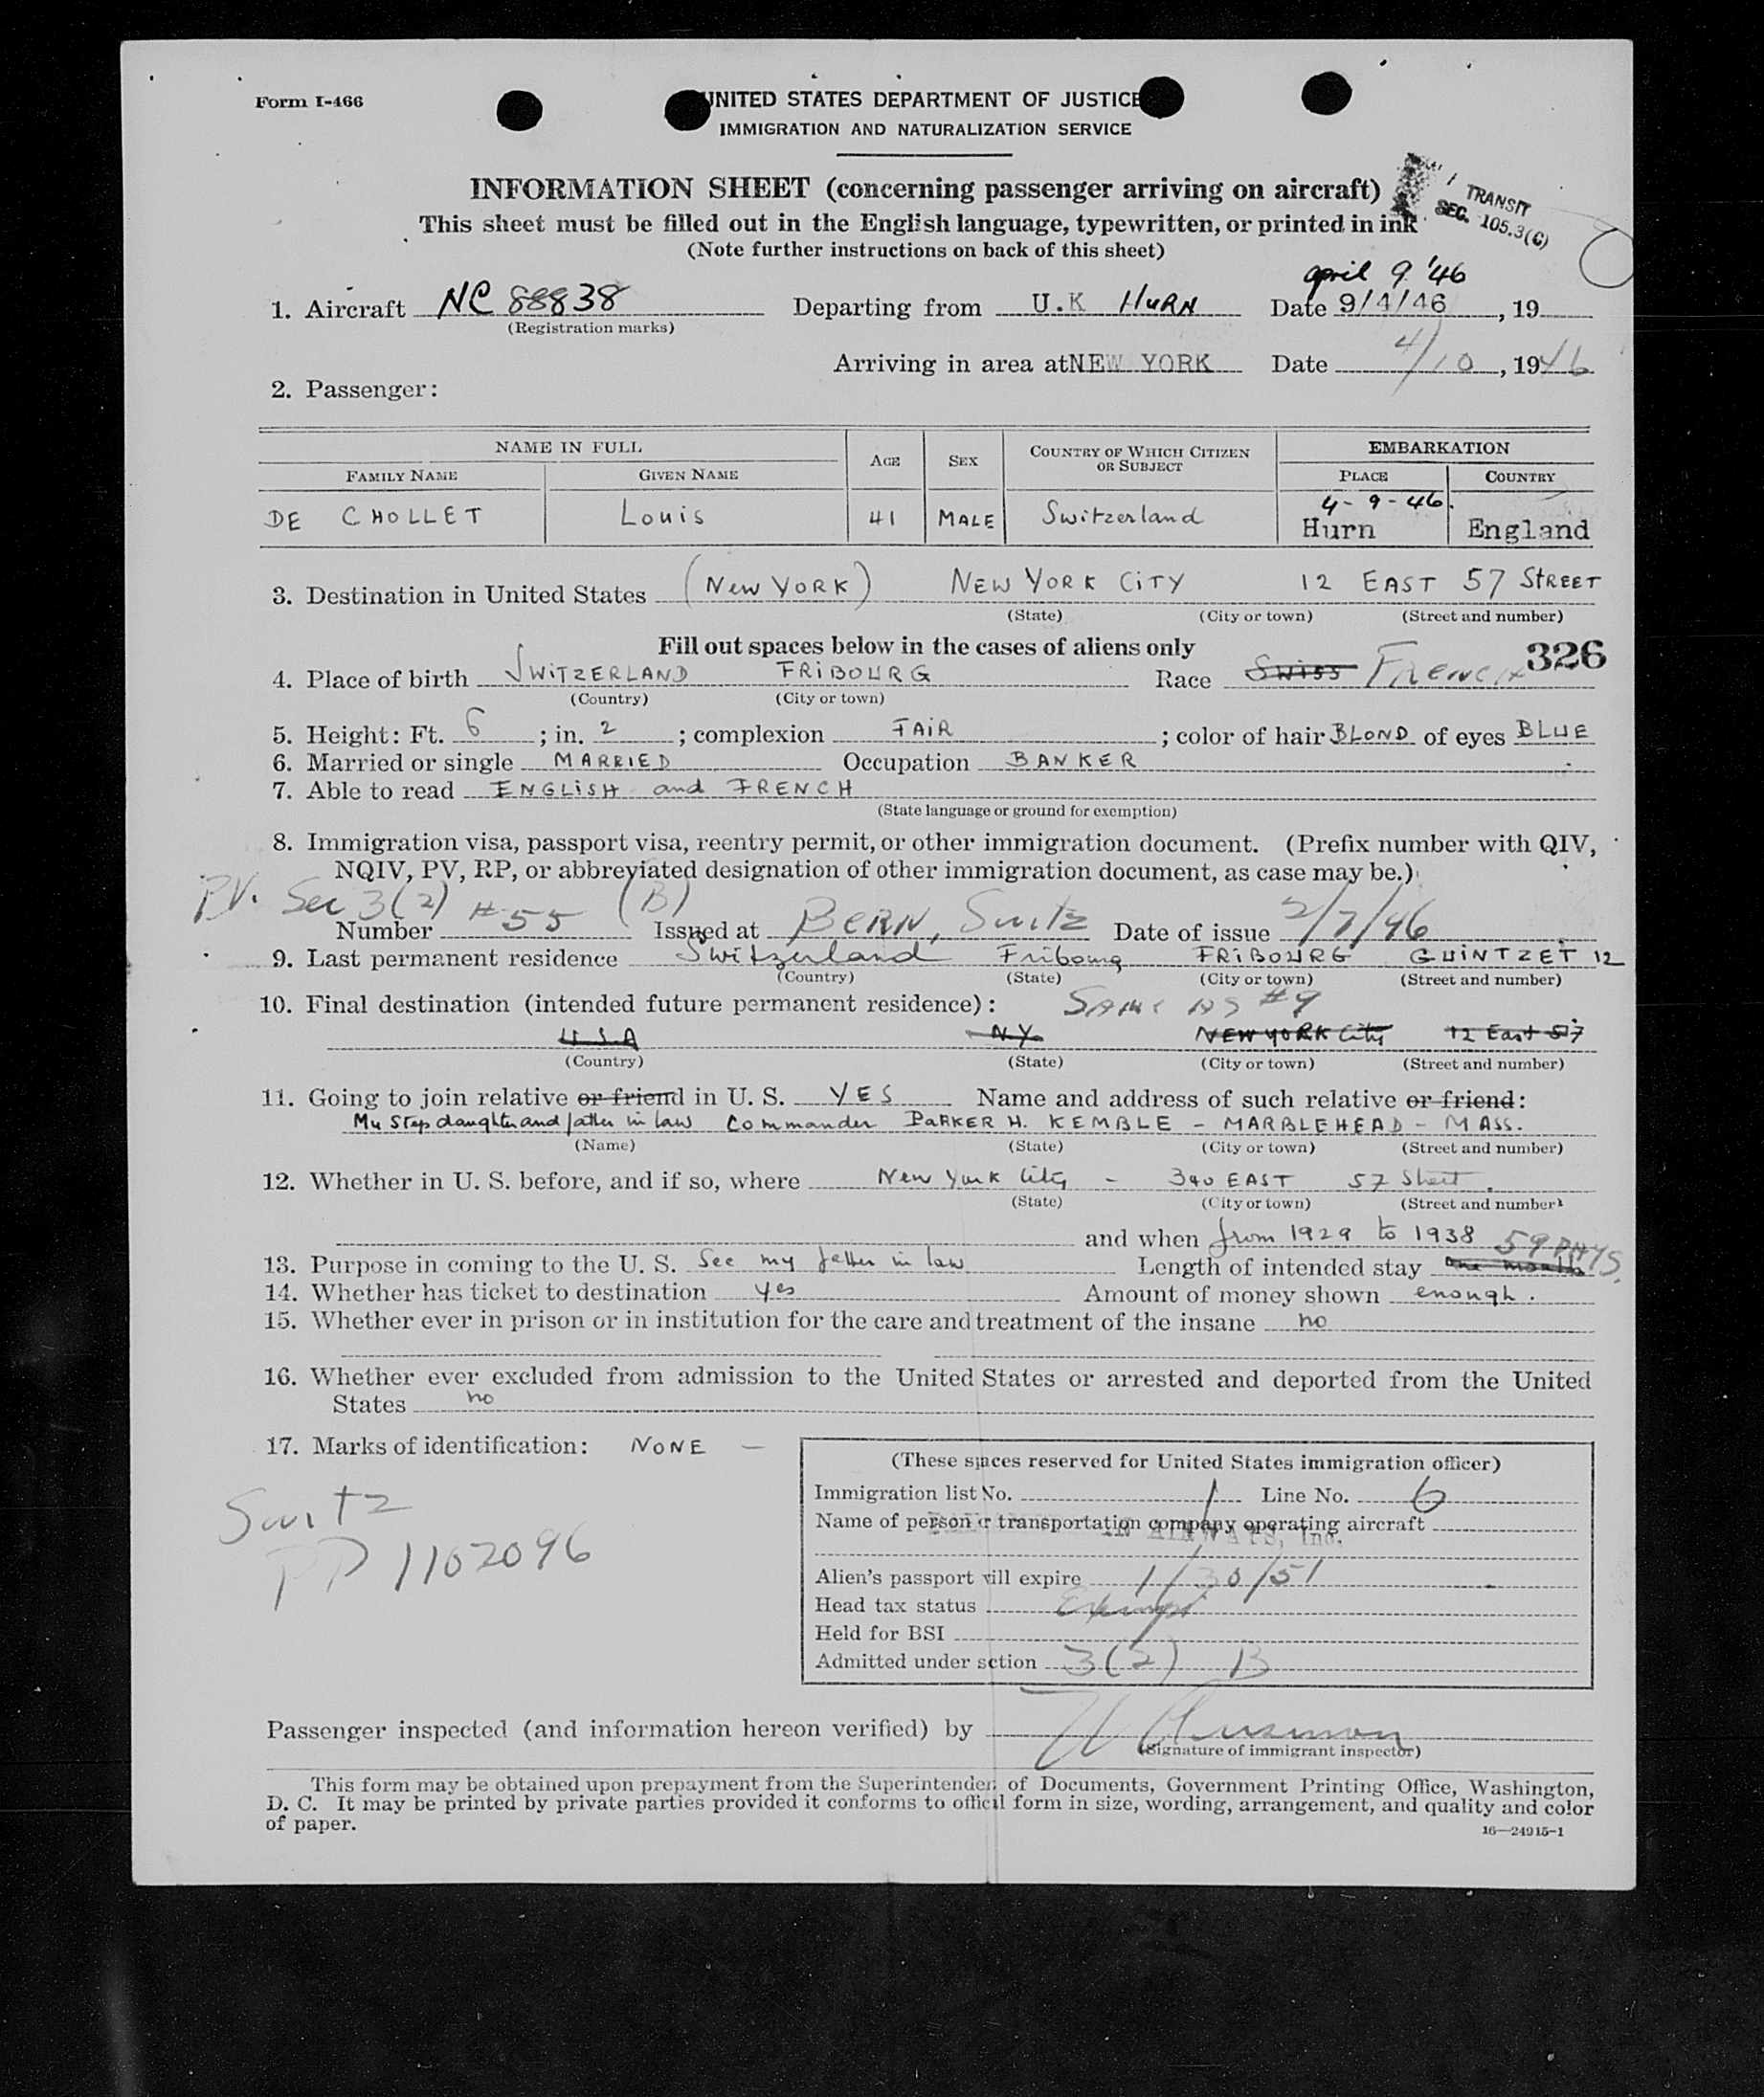 Form I-466
UNITED STATES DEPARTMENT OF JUSTICE
IMMIGRATION AND NATURALIZATION SERVICE
INFORMATION SHEET (concerning passenger arriving on aircraft)
TRANSIT
SEC. 105.3(C)
This sheet must be filled out in the English language, typewritten, or printed in ink
(Note further instructions on back of this sheet)
april 9 '46
1. Aircraft NC 88838 Departing from U.K HURN Date 9/4/46, 19
(Registration marks)
Arriving in area at NEW YORK Date 4/10, 1946
2. Passenger:
NAME IN FULL
AGE SEX COUNTRY OF WHICH CITIZEN OR SUBJECT EMBARKATION
FAMILY NAME GIVEN NAME PLACE COUNTRY
4-9-46.
DE CHOLLET Louis 41 MALE Switzerland Hurn England
3. Destination in United States (New YORK) NEW YORK CITY 12 EAST 57 STREET
(State) (City or town) (Street and number)
Fill out spaces below in the cases of aliens only
326
4. Place of birth SWITZERLAND FRIBOURG Race Swiss FRENCH
(Country) (City or town)
5. Height: Ft. 6 ; in. 2 ; complexion FAIR ; color of hair BLOND of eyes BLUE
6. Married or single MARRIED Occupation BANKER
7. Able to read ENGLISH and FRENCH
(State language or ground for exemption)
8. Immigration visa, passport visa, reentry permit, or other immigration document. (Prefix number with QIV,
NQIV, PV, RP, or abbreviated designation of other immigration document, as case may be.)
PV. Sec 3(2) (B)
Number #55 Issued at BERN, Switz Date of issue 2/7/46
9. Last permanent residence Switzerland Fribourg FRIBOURG GUINTZET 12
(Country) (State) (City or town) (Street and number)
10. Final destination (intended future permanent residence): SAME AS #9
U.S.A N.Y. NEW YORK City 12 East 57
(Country) (State) (City or town) (Street and number)
11. Going to join relative or friend in U. S. YES Name and address of such relative or friend:
My Step daughter and father in law Commander PARKER H. KEMBLE - MARBLEHEAD - MASS.
(Name) (State) (City or town) (Street and number)
12. Whether in U. S. before, and if so, where New York City - 340 EAST 57 Street.
(State) (City or town) (Street and number)
and when from 1929 to 1938
59 DAYS.
13. Purpose in coming to the U. S. See my father in law Length of intended stay one month
14. Whether has ticket to destination yes Amount of money shown enough.
15. Whether ever in prison or in institution for the care and treatment of the insane no
16. Whether ever excluded from admission to the United States or arrested and deported from the United
States no
17. Marks of identification: NONE —
Switz
PP 1102096
(These spaces reserved for United States immigration officer)
Immigration list No. 1 Line No. 6
Name of person or transportation company operating aircraft
AIRWAYS, Inc.
Alien's passport will expire 1/30/51
Head tax status Exempt
Held for BSI
Admitted under section 3(2) B
Passenger inspected (and information hereon verified) by
(Signature of immigrant inspector)
This form may be obtained upon prepayment from the Superintendent of Documents, Government Printing Office, Washington,
D. C. It may be printed by private parties provided it conforms to official form in size, wording, arrangement, and quality and color
of paper.
16—24915-1